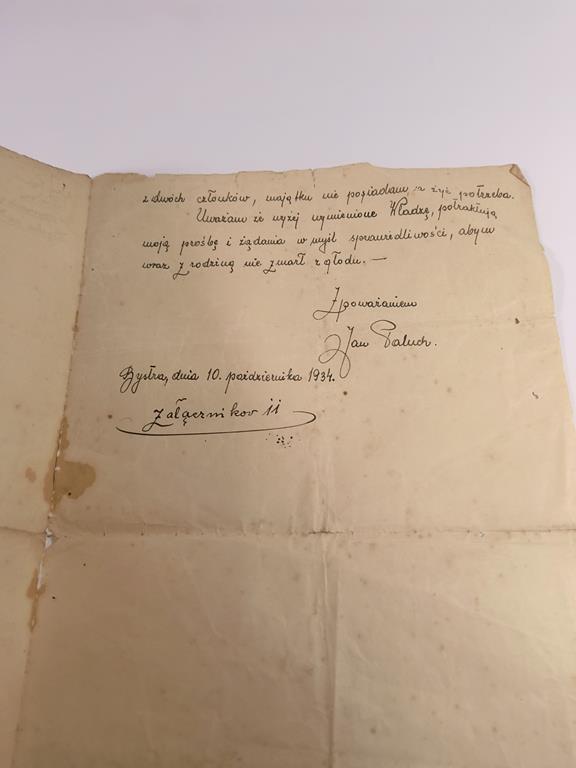 z dwóch członków, majątku nie posiadam, a żyć potrzeba.
Uważam że wyżej wymienione Władzę, potraktują
moją prośbę i żądania w myśl sprawiedliwości, abym
wraz z rodziną nie zmarł z głodu. —
Z poważaniem
Jan Paluch.
Bystra, dnia 10. października 1934.
Załączników 11